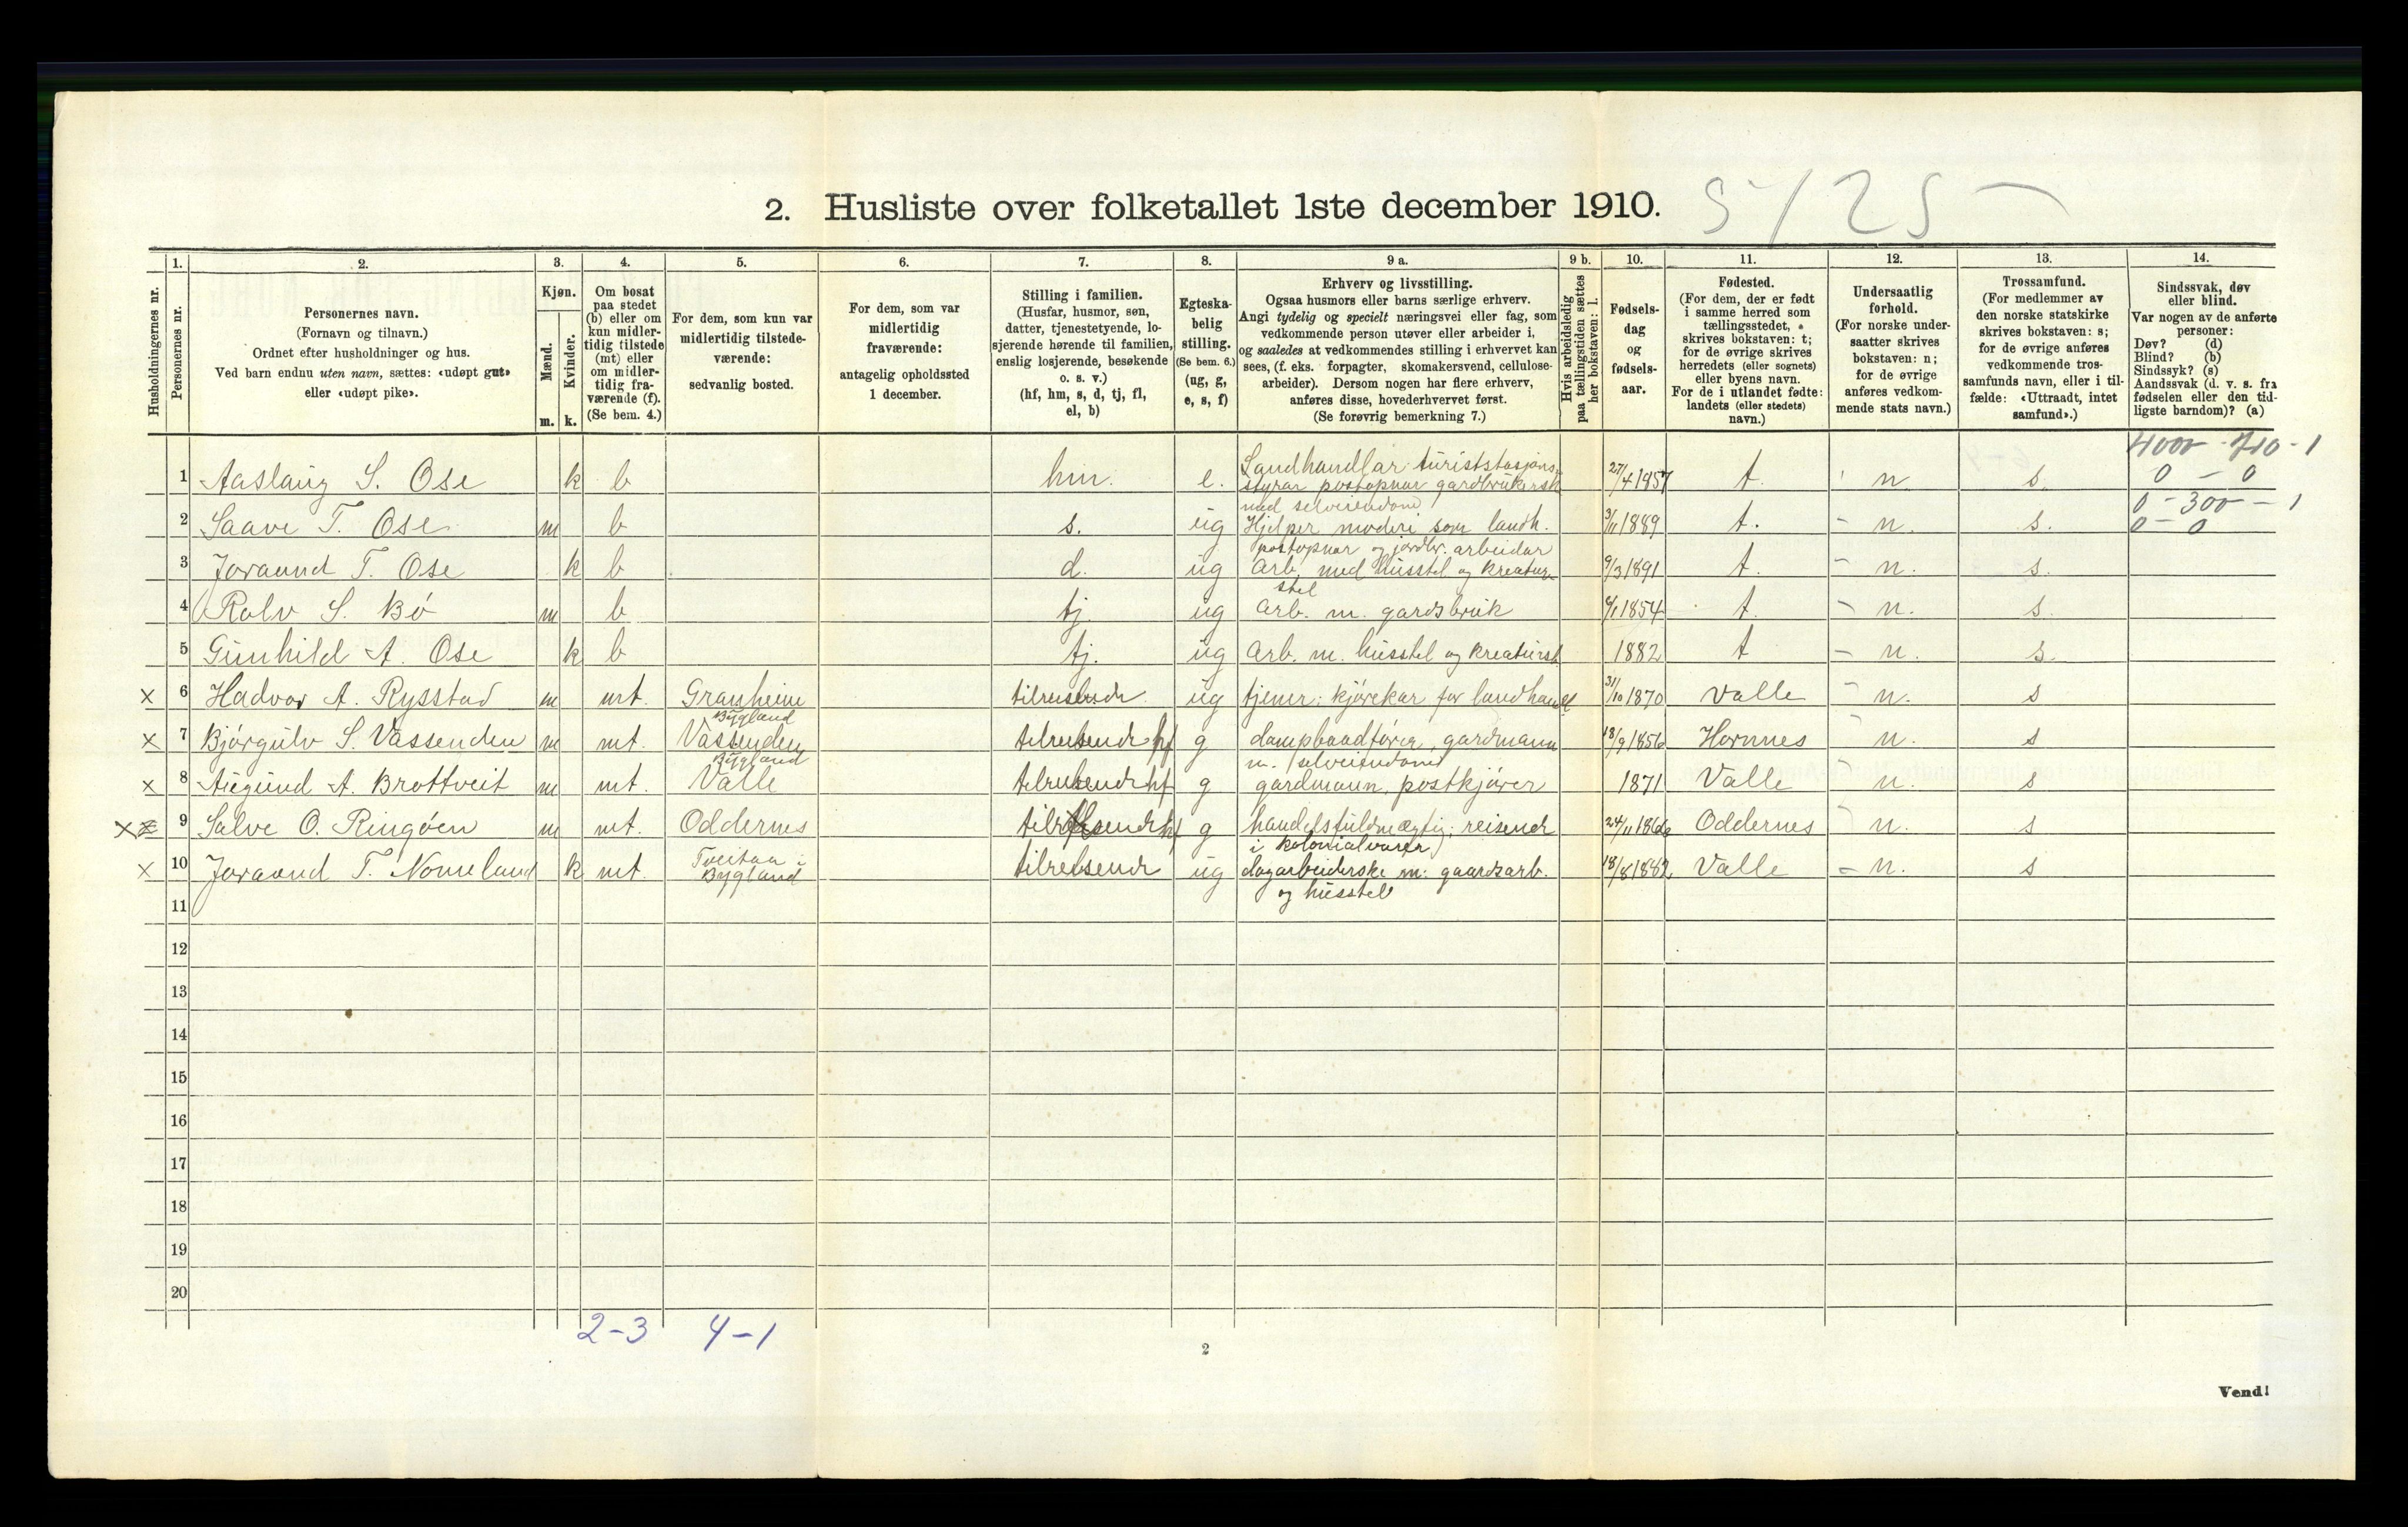 2. Husliste over folketallet 1ste december 1910. 5/25
1. 2. 3. 4. 5. 6. 7. 8. 9 a. 9 b. 10. 11. 12. 13. 14.
Husholdningernes nr.
Personernes nr.
Personernes navn.
(Fornavn og tilnavn.)
Ordnet efter husholdninger og hus.
Ved barn endnu uten navn, sættes: «udøpt gut»
eller «udøpt pike».
Kjøn.
Mænd.
Kvinder.
m. k.
Om bosat
paa stedet
(b) eller om
kun midler-
tidig tilstede
(mt) eller
om midler-
tidig fra-
værende (f).
(Se bem. 4.)
For dem, som kun var
midlertidig tilstede-
værende:
sedvanlig bosted.
For dem, som var
midlertidig
fraværende:
antagelig opholdssted
1 december.
Stilling i familien.
(Husfar, husmor, søn,
datter, tjenestetyende, lo-
sjerende hørende til familien,
enslig losjerende, besøkende
o. s. v.)
(hf, hm, s, d, tj, fl,
el, b)
Egteska-
belig
stilling.
(Se bem. 6.)
(ug, g,
e, s, f)
Erhverv og livsstilling.
Ogsaa husmors eller barns særlige erhverv.
Angi tydelig og specielt næringsvei eller fag, som
vedkommende person utøver eller arbeider i,
og saaledes at vedkommendes stilling i erhvervet kan
sees, (f. eks. forpagter, skomakersvend, cellulose-
arbeider). Dersom nogen har flere erhverv,
anføres disse, hovederhvervet først.
(Se forøvrig bemerkning 7.)
Hvis arbeidsledig
paa tællingstiden sættes
her bokstaven: l.
Fødsels-
dag
og
fødsels-
aar.
Fødested.
(For dem, der er født
i samme herred som
tællingsstedet,
skrives bokstaven: t;
for de øvrige skrives
herredets (eller sognets)
eller byens navn.
For de i utlandet fødte:
landets (eller stedets)
navn.)
Undersaatlig
forhold.
(For norske under-
saatter skrives
bokstaven: n;
for de øvrige
anføres vedkom-
mende stats navn.)
Trossamfund.
(For medlemmer av
den norske statskirke
skrives bokstaven: s;
for de øvrige anføres
vedkommende tros-
samfunds navn, eller i til-
fælde: «Uttraadt, intet
samfund».)
Sindssvak, døv
eller blind.
Var nogen av de anførte
personer:
Døv? (d)
Blind? (b)
Sindssyk? (s)
Aandssvak (d. v. s. fra
fødselen eller den tid-
ligste barndom)? (a)
4000 - 710 - 1
1 Aaslaug S. Ose k b hm. e. Landhandlar turiststasjons- 27/4 1857 t. n s. 0 - 0
styrar postopnar gardbrukersk
med selveiendom
2 Saave T. Ose m b s. ug Hjelper moderi som landh. 3/11 1889 t. - n. s. 0 - 300 - 1
0 - 0
postopnar og jordbr. arbeidar
3 Joraand T. Ose k b d. ug Arb. med husstel og kreatur- 9/3 1891 t. - n. s.
stel
4 Rolv S. Bø m b tj. ug Arb. m. gardsbruk 4/1 1854 t. - n. s.
5 Gunhild A. Ose k b tj. ug Arb. m. husstel og kreaturst. 1882 t - n. s.
x 6 Hadvor A. Rysstad m mt. Granheim tilreisende ug tjener: kjørekar for landhandl 31/10 1870 Valle - n. s
Bygland
x 7 Bjørgulv S. Vassenden m mt. Vassenden tilreisende hf g dampbaadfører, gardmann 18/9 1856 Hornnes n. s
Bygland m. selveiendom
x 8 Augund A. Brottveit m mt. Valle tilreisende hf g gardmann, postkjører 1871 Valle n. s
x 9 Salve O. Ringøen m mt. Oddernes tilreisende hf g handelsfuldmægtig; reisende 24/11 1866 Oddernes n. s
i kolonialvarer
x 10 Joraand T. Nomeland k mt. Tveitaa i tilreisende ug dagarbeiderske m: gaardsarb. 18/8 1882 Valle - n. s
Bygland og husstel
11
12
13
14
15
16
17
18
19
20
2-3 4-1
2
Vend!